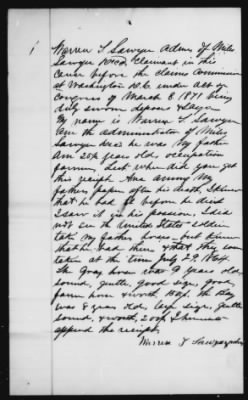 1
Warren T Sawyer Admr of Miles
Sawyer Decd Claimant in this
cause before the claims Commission
at Washington D.C. under act of
Congress of March 3. 1871 being
duly sworn deposes & says
My name is Warren T Sawyer
am the administrator of Miles
Sawyer decd he was my father
Am 28 years old, occupation
farmer, Quest where did you get
this receipt Ans among my
fathers papers after his death, I know
that he had it before he died
I saw it in his possession. I did
not see the United States soldiers
take my father horses but know
that he had them & that they were
taken at the time July 29. 1864.
The Gray horse was 9 years old,
sound, gentle, good size, good
farm horse & worth 150$. The
was 8 year old, large size, gentle,
sound, & worth, 200$ &
append the receipt,
Warren T Sawyer